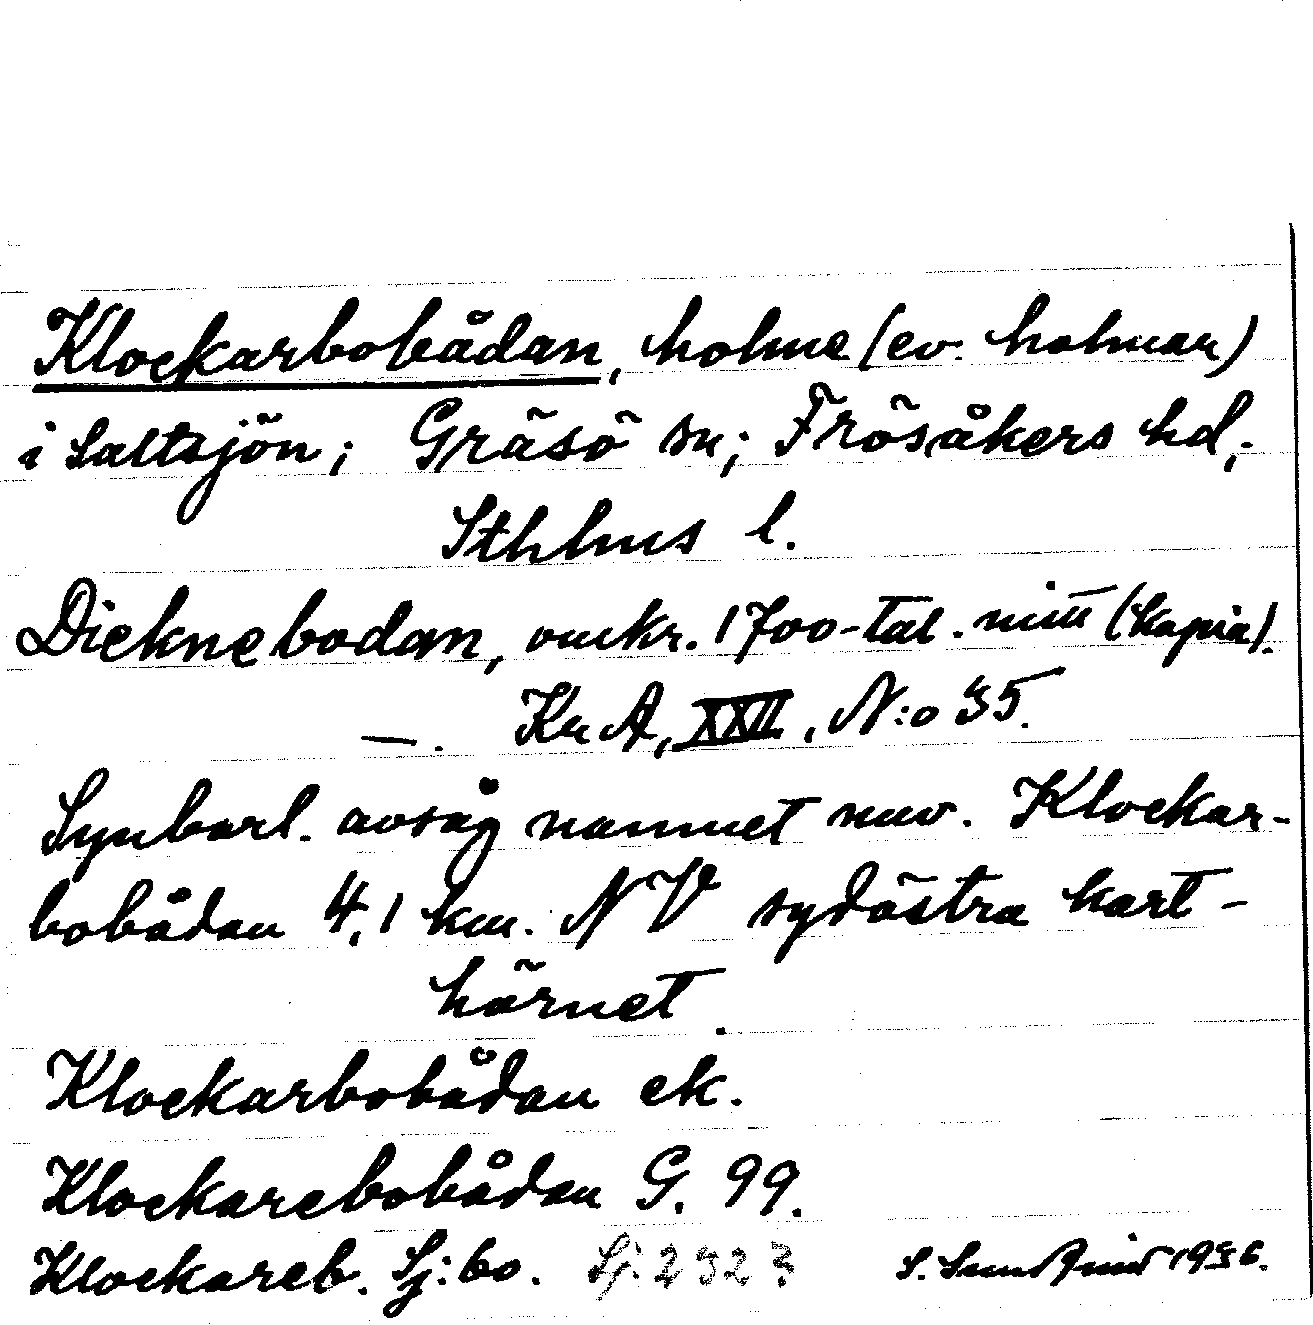 Klockarbobådan, holme (ev. holmar)
i Saltsjön; Gräsö sn; Frösåkers hd,
Sthlms l.
Dieknebodan, omkr. 1700-tal. mitt (kopia).
—. KrA, XXII, N:o 35.
Synbarl. avsåg namnet nuv. Klockar-
bobådan 4,1 km. NV sydöstra kart-
hörnet.
Klockarbobådan ek.
Klockarebobådan G. 99.
Klockareb. Sj:bo. Sj. 2323 S. 1936.